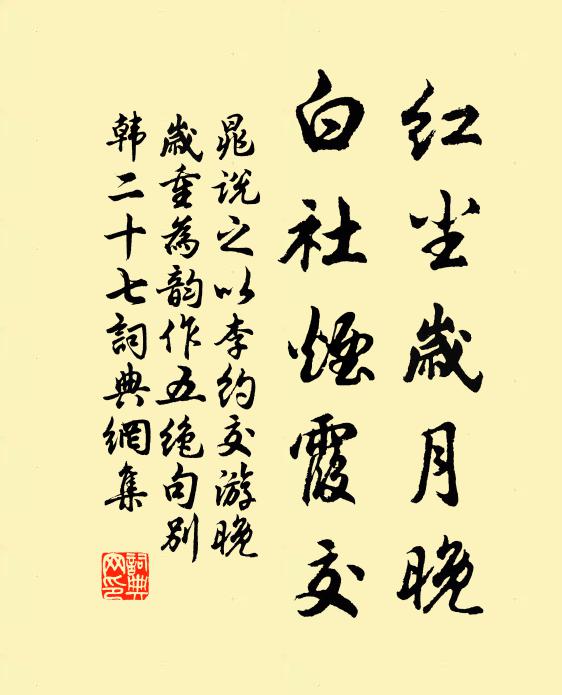 红尘岁月晚
白社烟霞交
晁说之以李约交游晚
岁重为韵作五绝句别
韩二十七詞典網集
詞典网印